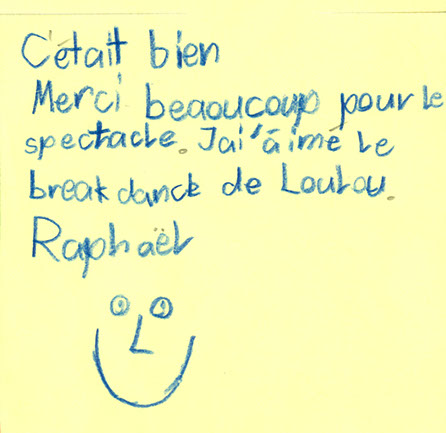 C'était bien
Merci beaoucoup pour le
spectacle. Jai'aimé Le
break danck de Loulou.
Raphaël